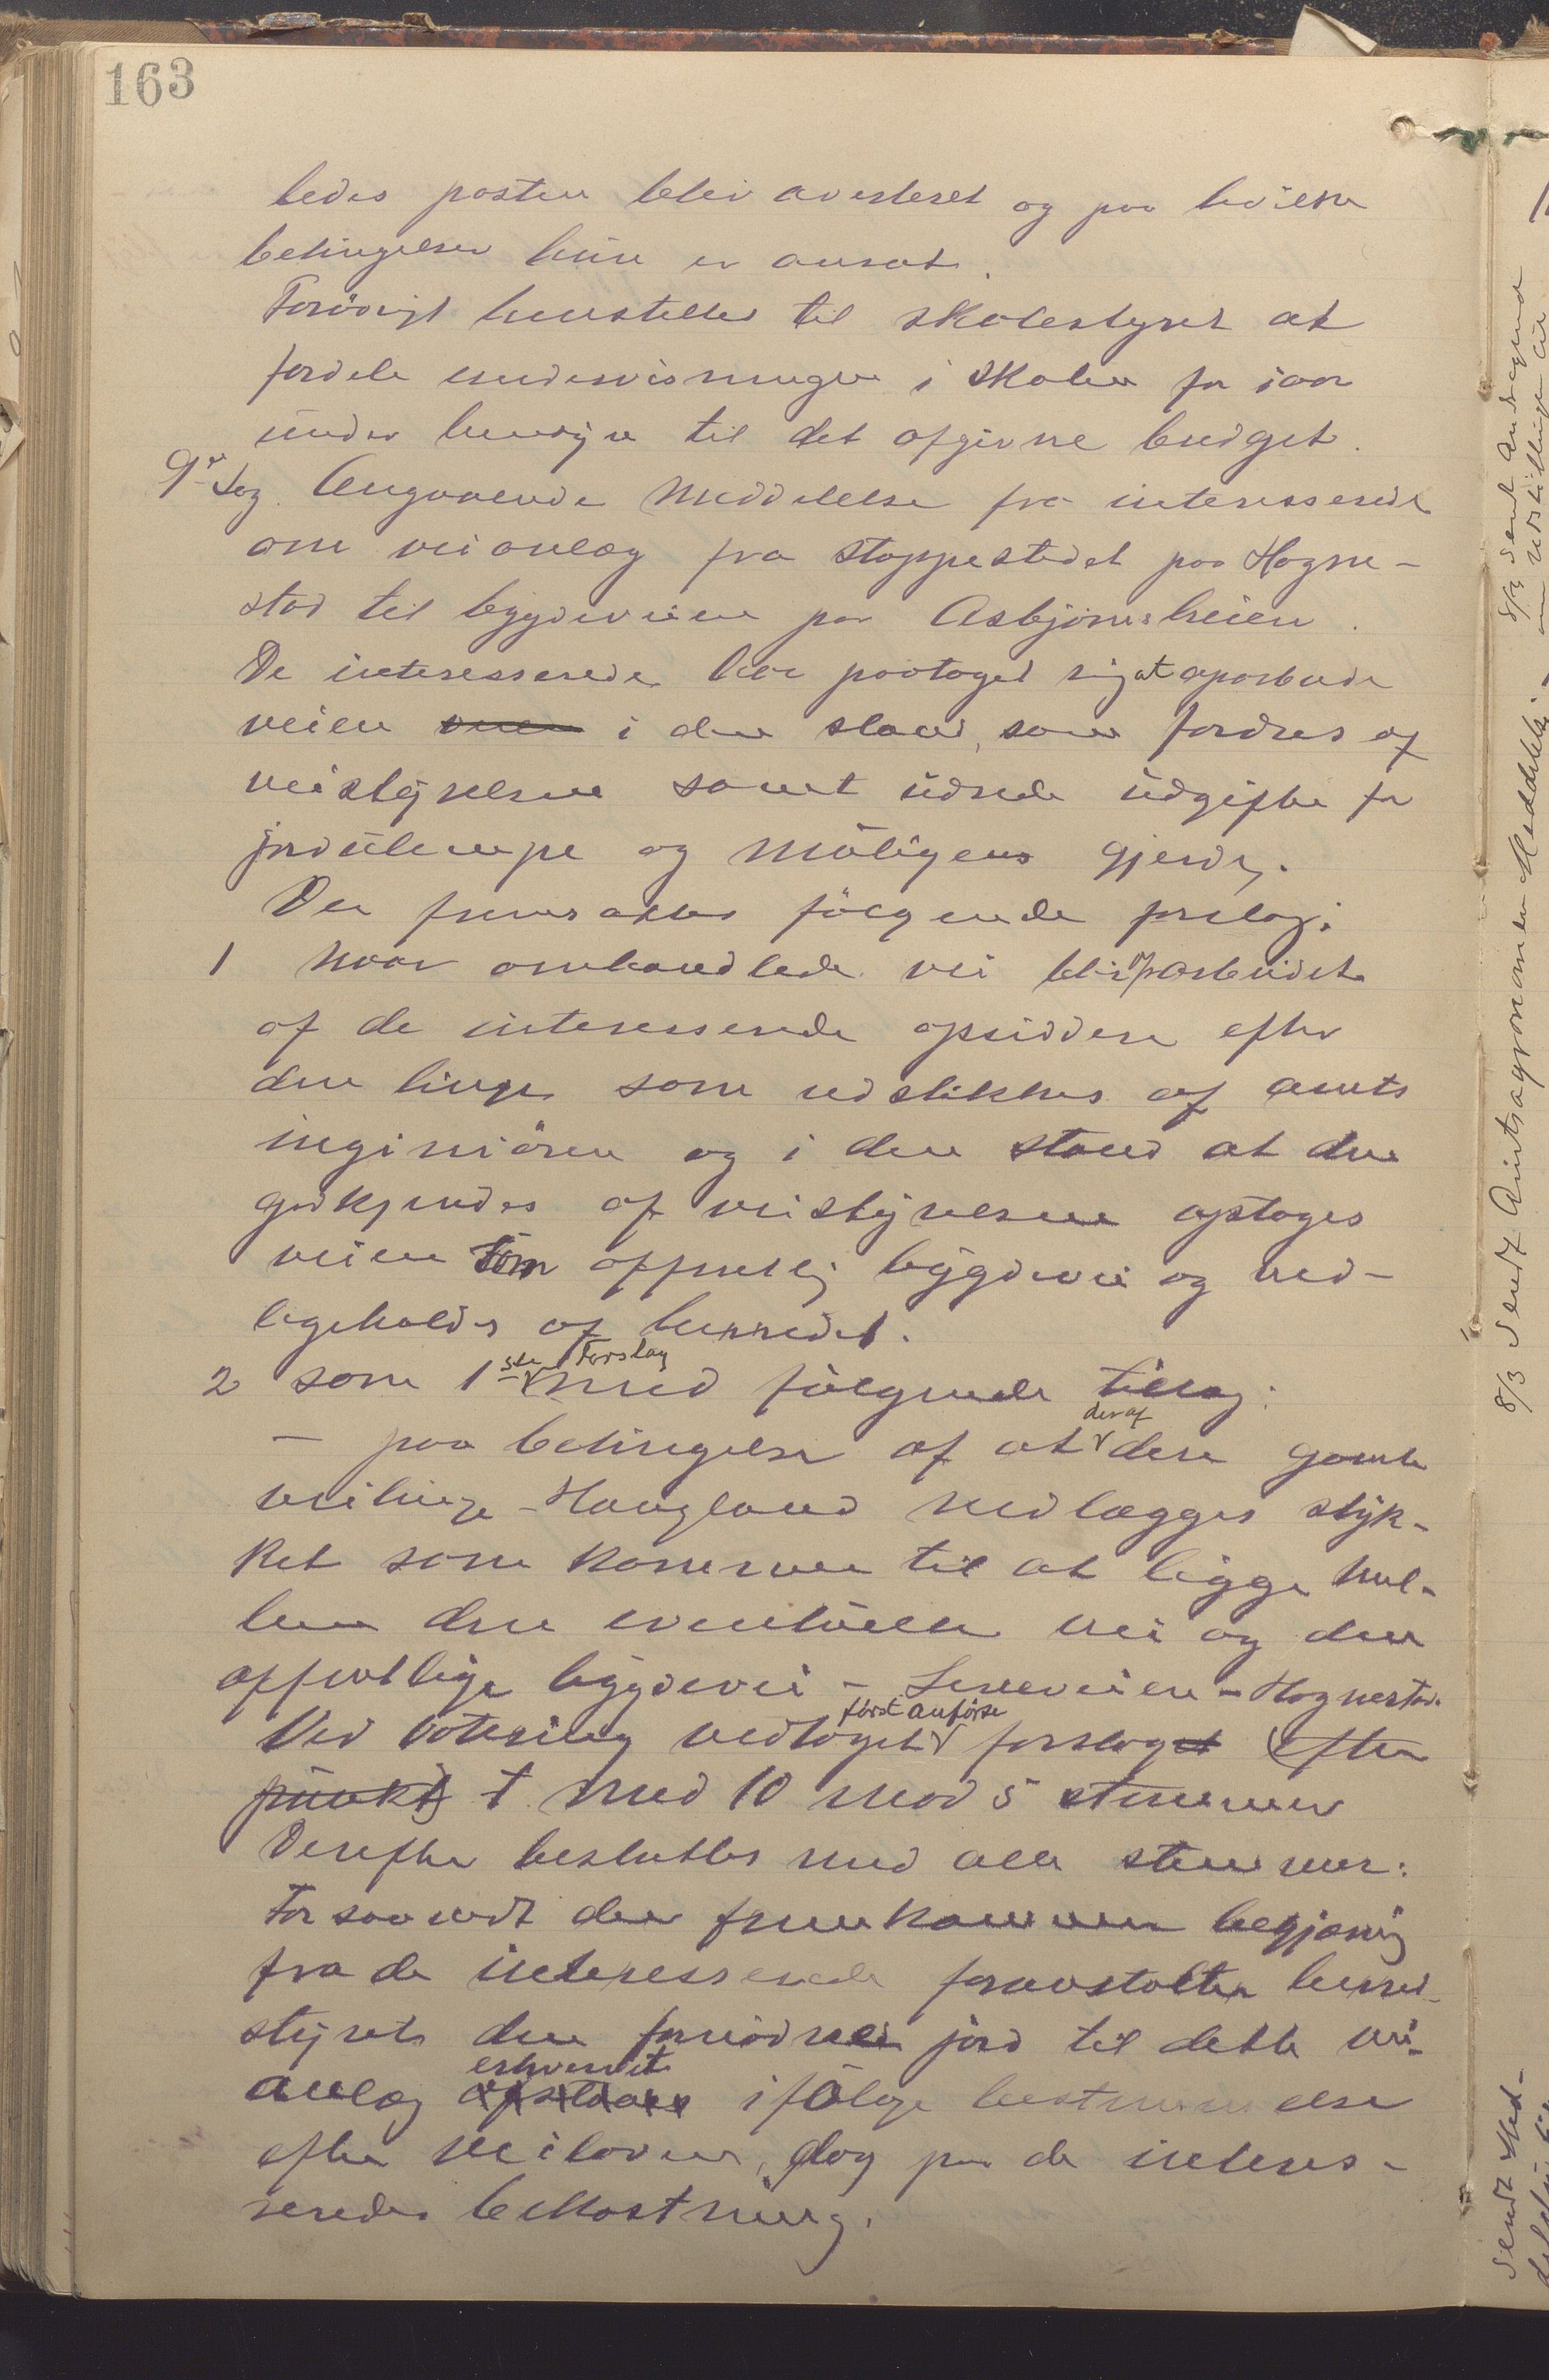 163
ledes posten blev averteret og paa hvilke
betingelser hun er ansat.
Forövrigt henstilles til skolestyret at
fordele undervisningen i skolen for iaar
under hensyn til det afgivne budget.
9de Sag. Angaaende Meddelelse fra interesserede
om veianlæg fra stoppestedet paa Hogne-
stad til bygdeveien paa Asbjörnsheien.
De interesserede har paataget sig at oparbeide
veien i den stand, som fordres af
veistyrelsen samt udrede udgifter for
jordulempe og muligens gjerde.
Der fremsattes fölgende forslag:
1 Naar omhandlede vei blir oparbeidet
af de interesserede opsiddere efter
den linje som udstikkes af amts
ingeniören og i den stand at den
godkjendes af veistyrelsen optages
veien som offentlig bygdevei og ved-
ligeholdes af herredet.
2 som 1ste Forslag med fölgende tillæg:
– paa betingelse af at deraf den gamle
veilinje – Haugland nedlægges styk-
ket som kommer til at ligge mel-
lem den eventuelle vei og den
offentlige bygdevei – – Hognestad.
Ved votering vedtoges först anförte forslaget (efter
punkt) 1 med 10 mod 5 stemmer
Derefter besluttes med alle stemmer:
Forsaavidt der fremkommer begjæring
fra de interesserede foranstalter herred-
styret den fornödne jord til dette vei-
anlæg erhvervet ifölge bestemmelse
efter veiloven, dog paa de interes-
seredes bekostning.
8/3 Sendt Amtsagronomen Meddelelse
8/3 sendt Andragende
om udstillingen
Sendt Med-